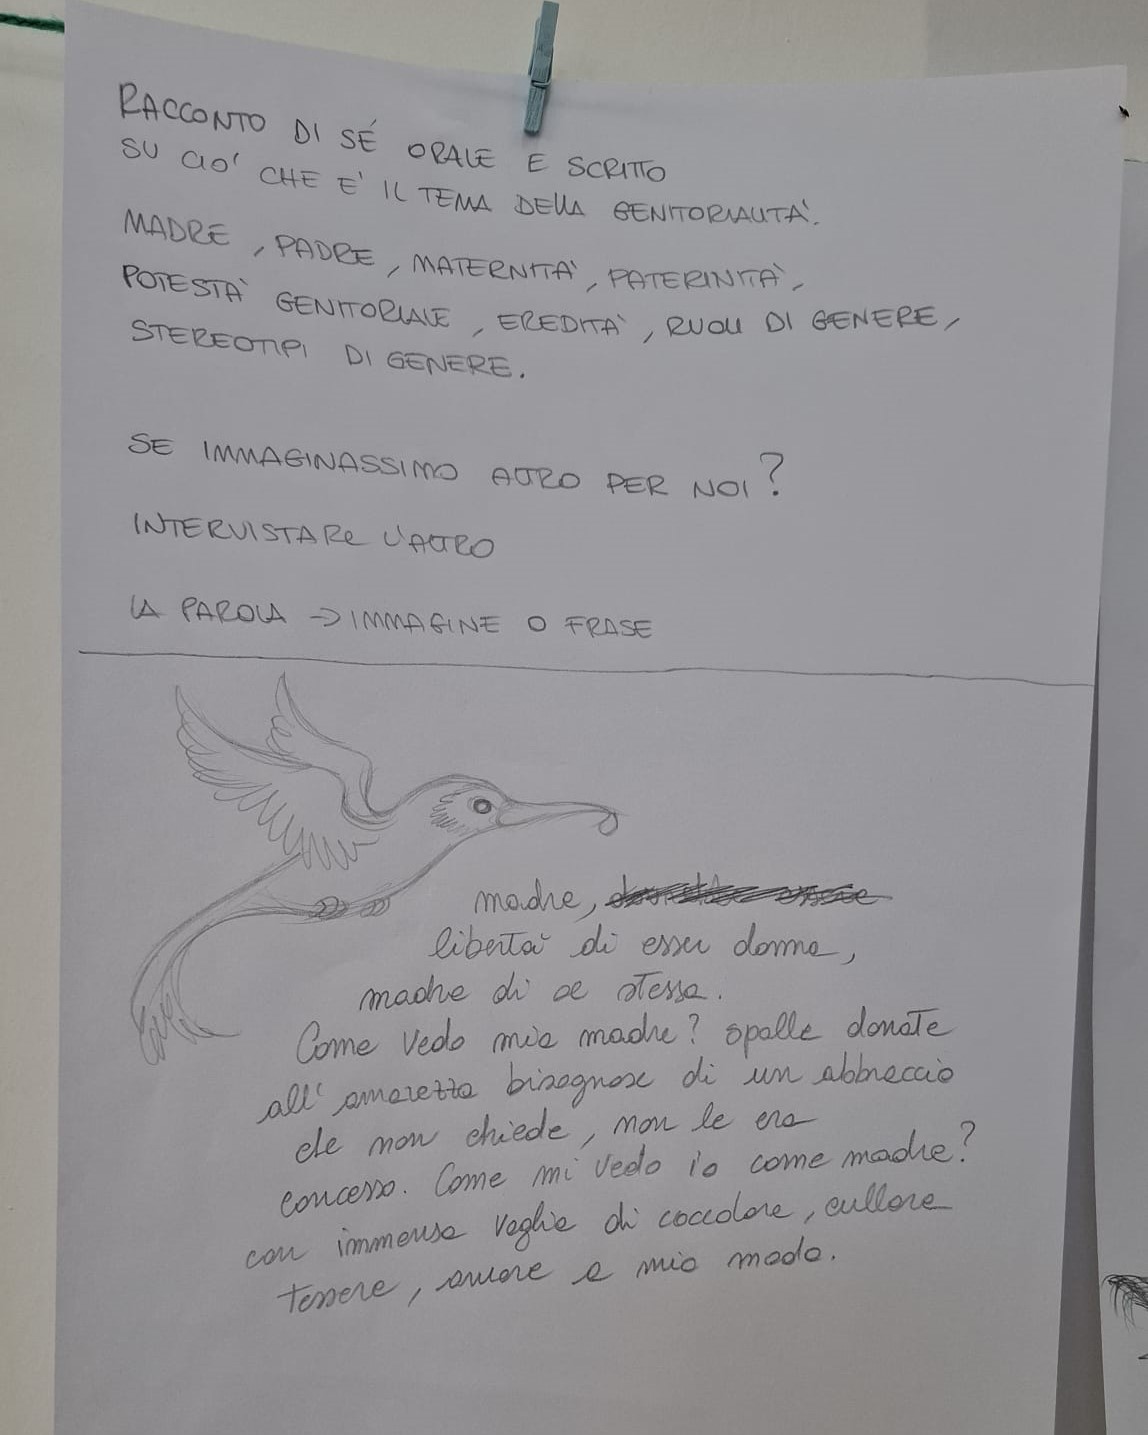 RACCONTO DI SÉ ORALE E SCRITTO
SU CIO' CHE E' IL TEMA DELLA GENITORIALITA'.
MADRE, PADRE, MATERNITA', PATERINITA',
POTESTA' GENITORIALE, EREDITA', RUOLI DI GENERE,
STEREOTIPI DI GENERE.
SE IMMAGINASSIMO ALTRO PER NOI?
INTERVISTARE L'ALTRO
LA PAROLA → IMMAGINE O FRASE
madre,
libertà di esser donna,
madre di se stessa.
Come vedo mia madre? spalle donate
all'amarezza bisognose di un abbraccio
che non chiede, non le era
concesso. Come mi vedo io come madre?
con immensa voglia di coccolare, cullare
tessere, amare a mio modo.